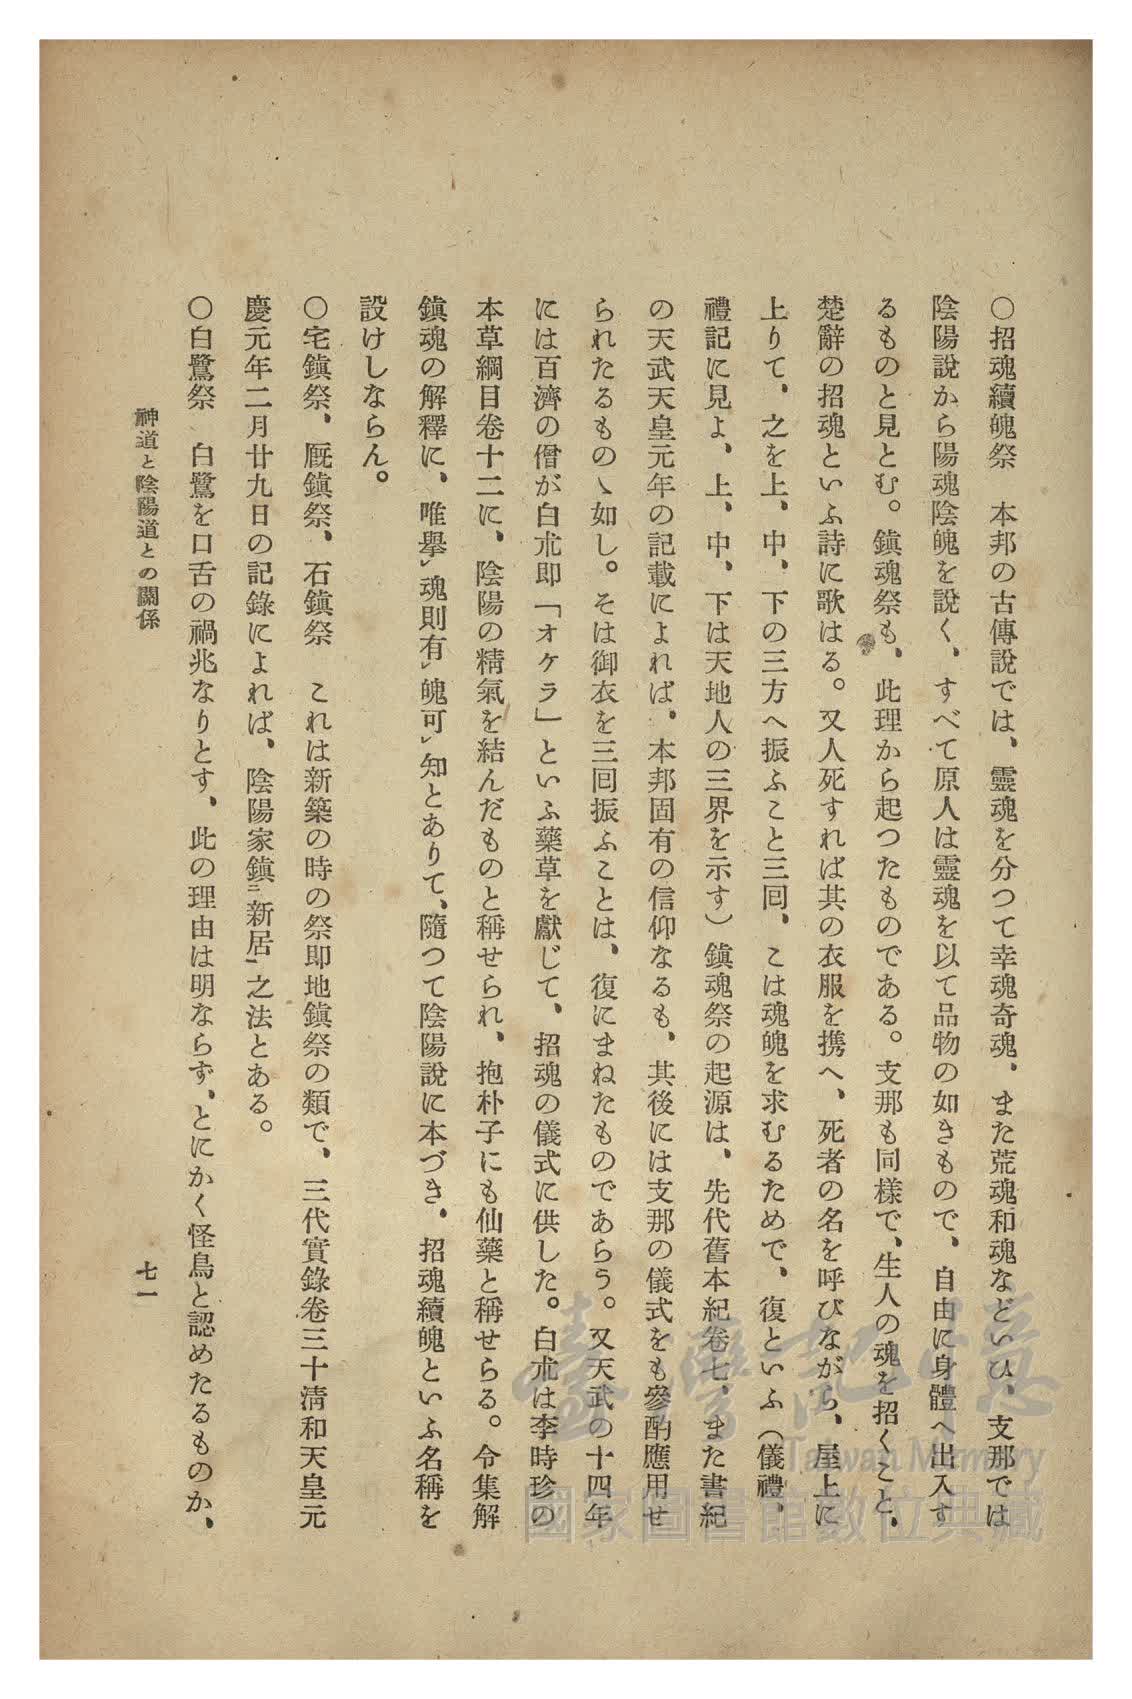 ○招魂續魄祭　本邦の古傳說では、靈魂を分つて幸魂奇魂、また荒魂和魂などいひ、支那では
陰陽說から陽魂陰魄を說く、すべて原人は靈魂を以て品物の如きもので、自由に身體へ出入す
るものと見とむ。鎭魂祭も、此理から起つたものである。支那も同樣で、生人の魂を招くこと、
楚辭の招魂といふ詩に歌はる。又人死すれば其の衣服を携へ、死者の名を呼びながら、屋上に
上りて、之を上、中、下の三方へ振ふこと三回、こは魂魄を求むるためで、復といふ（儀禮、
禮記に見よ、上、中、下は天地人の三界を示す）鎭魂祭の起源は、先代舊本紀卷七、また書紀
の天武天皇元年の記載によれば、本邦固有の信仰なるも、其後には支那の儀式をも參酌應用せ
られたるものゝ如し。そは御衣を三回振ふことは、復にまねたものであらう。又天武の十四年
には百濟の僧が白朮即「オケラ」といふ藥草を獻じて、招魂の儀式に供した。白朮は李時珍の
本草綱目卷十二に、陰陽の精氣を結んだものと稱せられ、抱朴子にも仙藥と稱せらる。令集解
鎭魂の解釋に、唯擧レ魂則有レ魄可レ知とありて、隨つて陰陽說に本づき、招魂續魄といふ名稱を
設けしならん。
○宅鎭祭、厩鎭祭、石鎭祭　これは新築の時の祭即地鎭祭の類で、三代實錄卷三十淸和天皇元
慶元年二月廿九日の記錄によれば、陰陽家鎭二新居一之法とある。
○白鷺祭　白鷺を口舌の禍兆なりとす、此の理由は明ならず、とにかく怪鳥と認めたるものか、
神道と陰陽道との關係
七一
臺灣記憶
Taiwan Memory
國家圖書館數位典藏